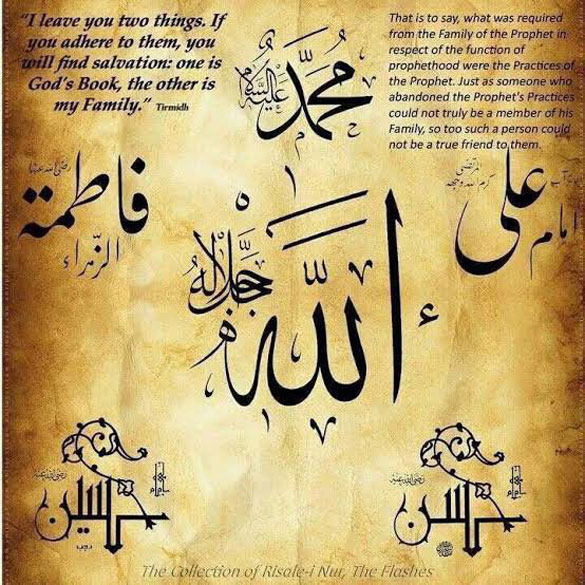 "I leave you two things. If
you adhere to them, you
will find salvation: one is
God's Book, the other is
my Family." Tirmidh
That is to say, what was required
from the Family of the Prophet in
respect of the function of
prophethood were the Practices of
the Prophet. Just as someone who
abandoned the Prophet's Practices
could not truly be a member of his
Family, so too such a person could
not be a true friend to them.
محمد
عليه السلام
علي
امام
المرتضى
كرم الله وجهه
فاطمة
الزهراء
رضي الله عنها
الله
جل جلاله
حسين
امام
رضي الله عنه
حسن
امام
رضي الله عنه
The Collection of Risale-i Nur, The Flashes